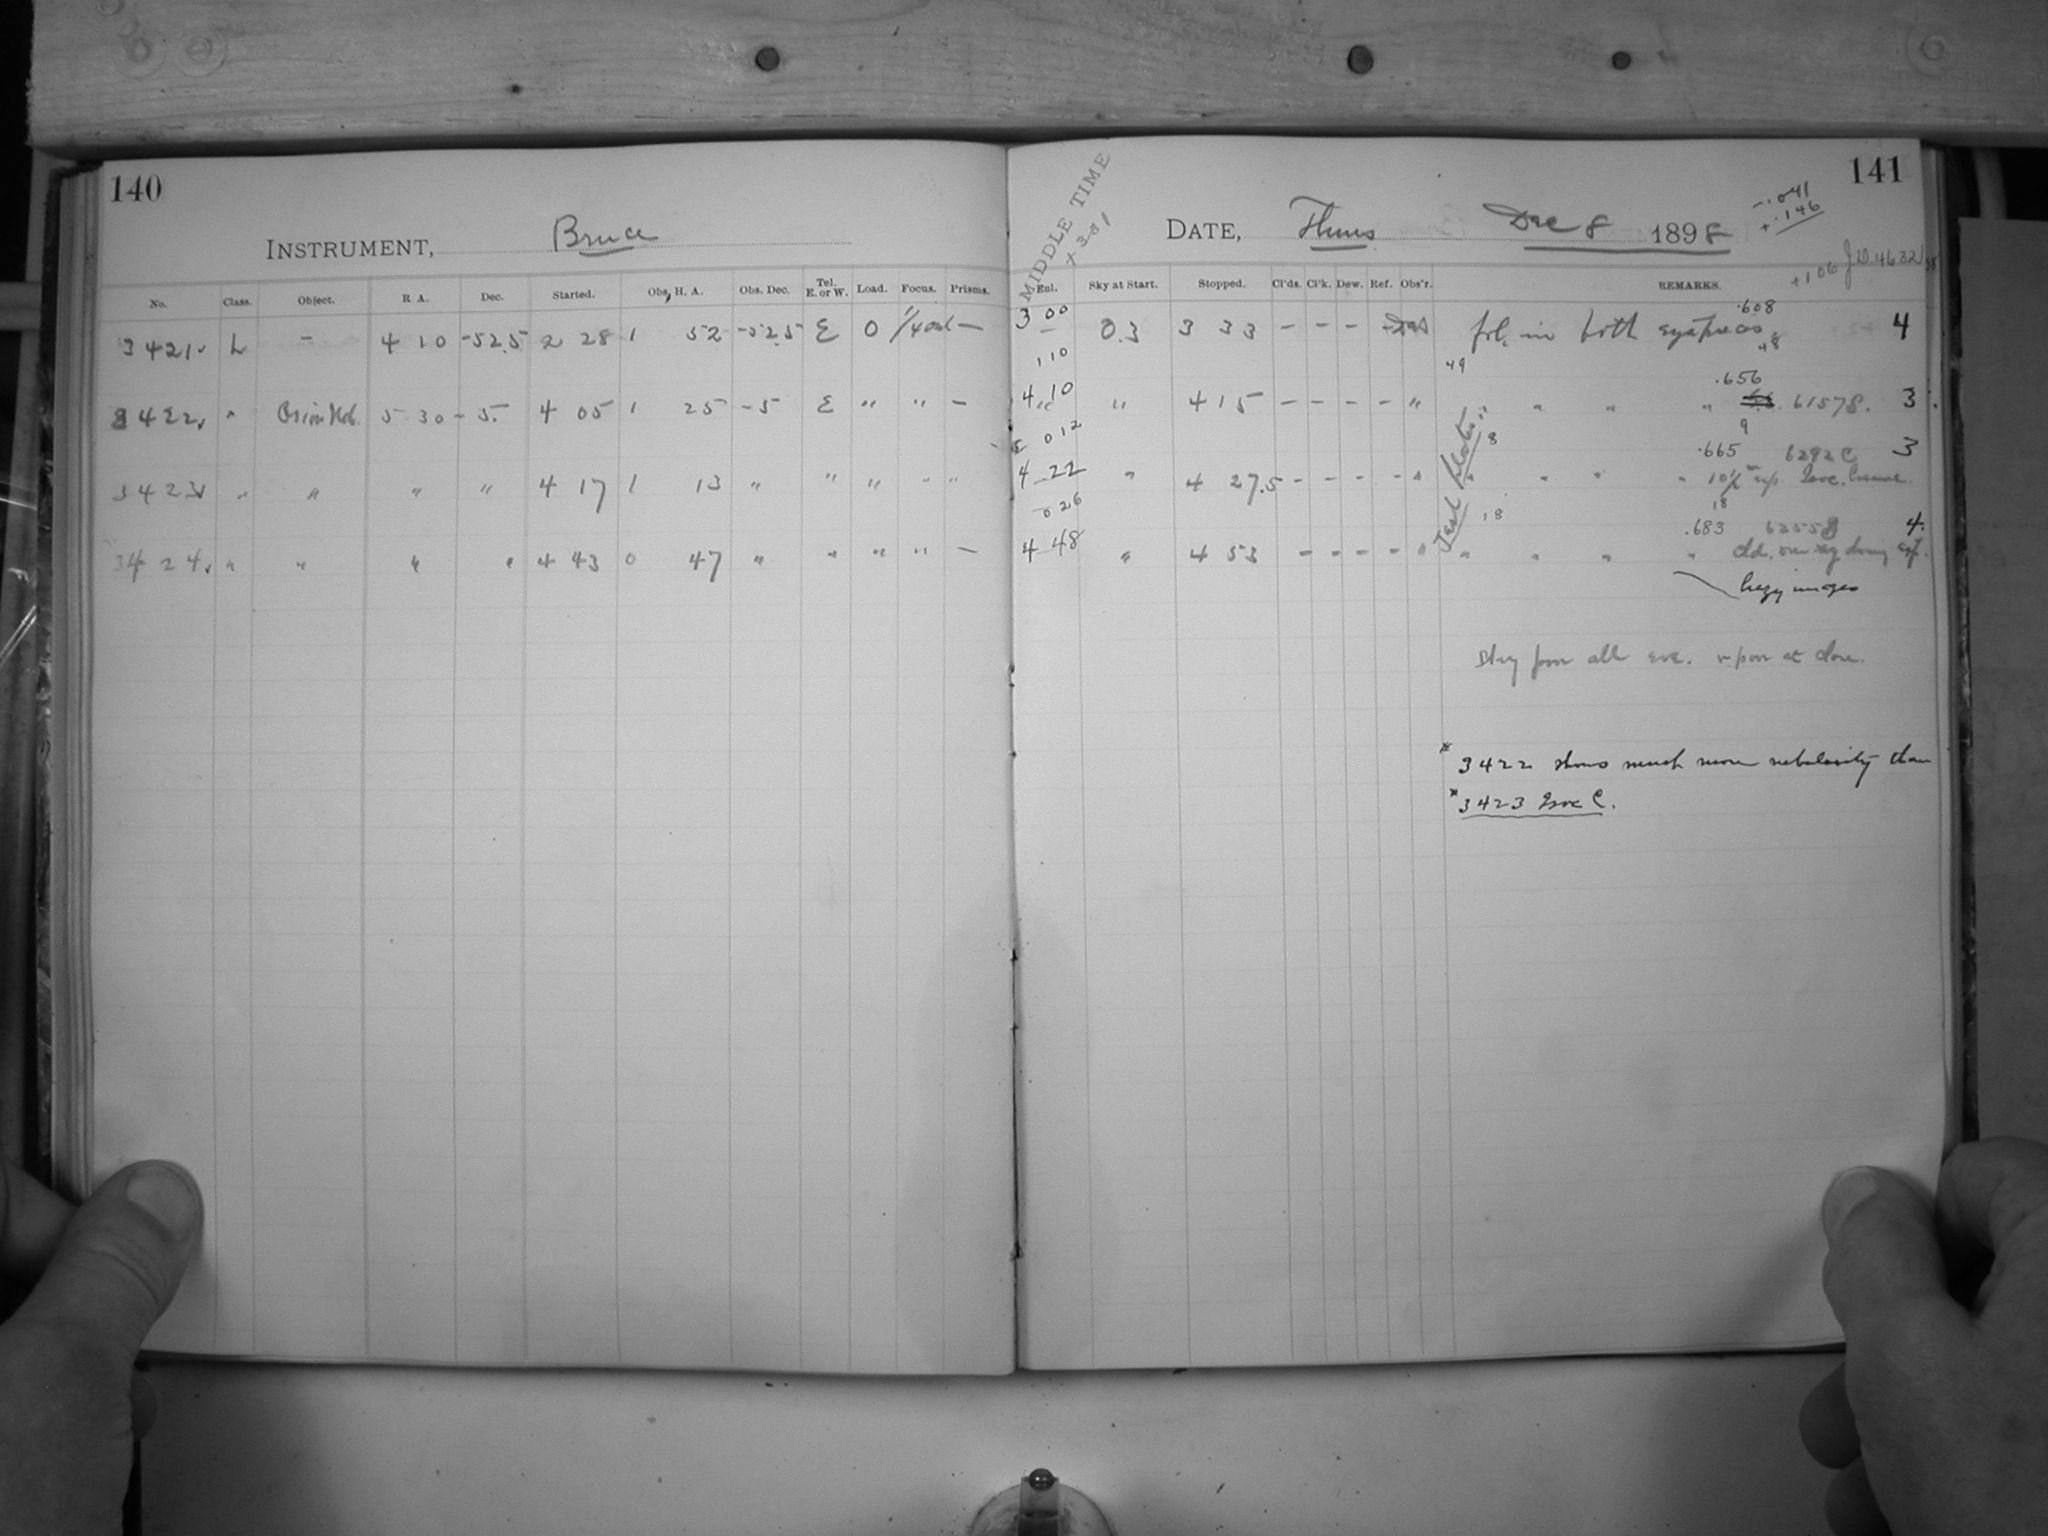 140
INSTRUMENT, Bruce
No. Class. Object. R A. Dec. Started. Obs, H. A. Obs. Dec. Tel. E. or W. Load. Focus. Prisms.
3421 L - 4 10 -52.5 2 28 1 52 -52.5 E 0 1/4 out -
3422 " Orion Neb. 5 30 - 5. 4 05 1 25 -5 E " " -
3423 " " " " 4 17 1 13 " " " " "
3424 " " " " 4 43 0 47 " " " " -
141
MIDDLE TIME
DATE, Thurs Dec 8 1898
-.041
+.146
+106 J.D. 4632
Enl. Sky at Start. Stopped. Cl'ds. Cl'k. Dew. Ref. Obs'r. REMARKS.
.608
3 00 0.3 3 33 - - - - fol. in both 4
49 48
1 10
.656
4 10 " 4 15 - - - - " " " " " 61578. 3
9
0 12
8 .665 6292C 3
4 22 " 4 27.5 - - - - " " " " "
0 26 18
18 .683 62558 4.
4 48 " 4 53 - - - - " " " " " cld. over sky during exp.
Test Plates
hazy images
Sky poor all eve. v poor at close.
* 3422 shows much more nebulosity than
* 3423